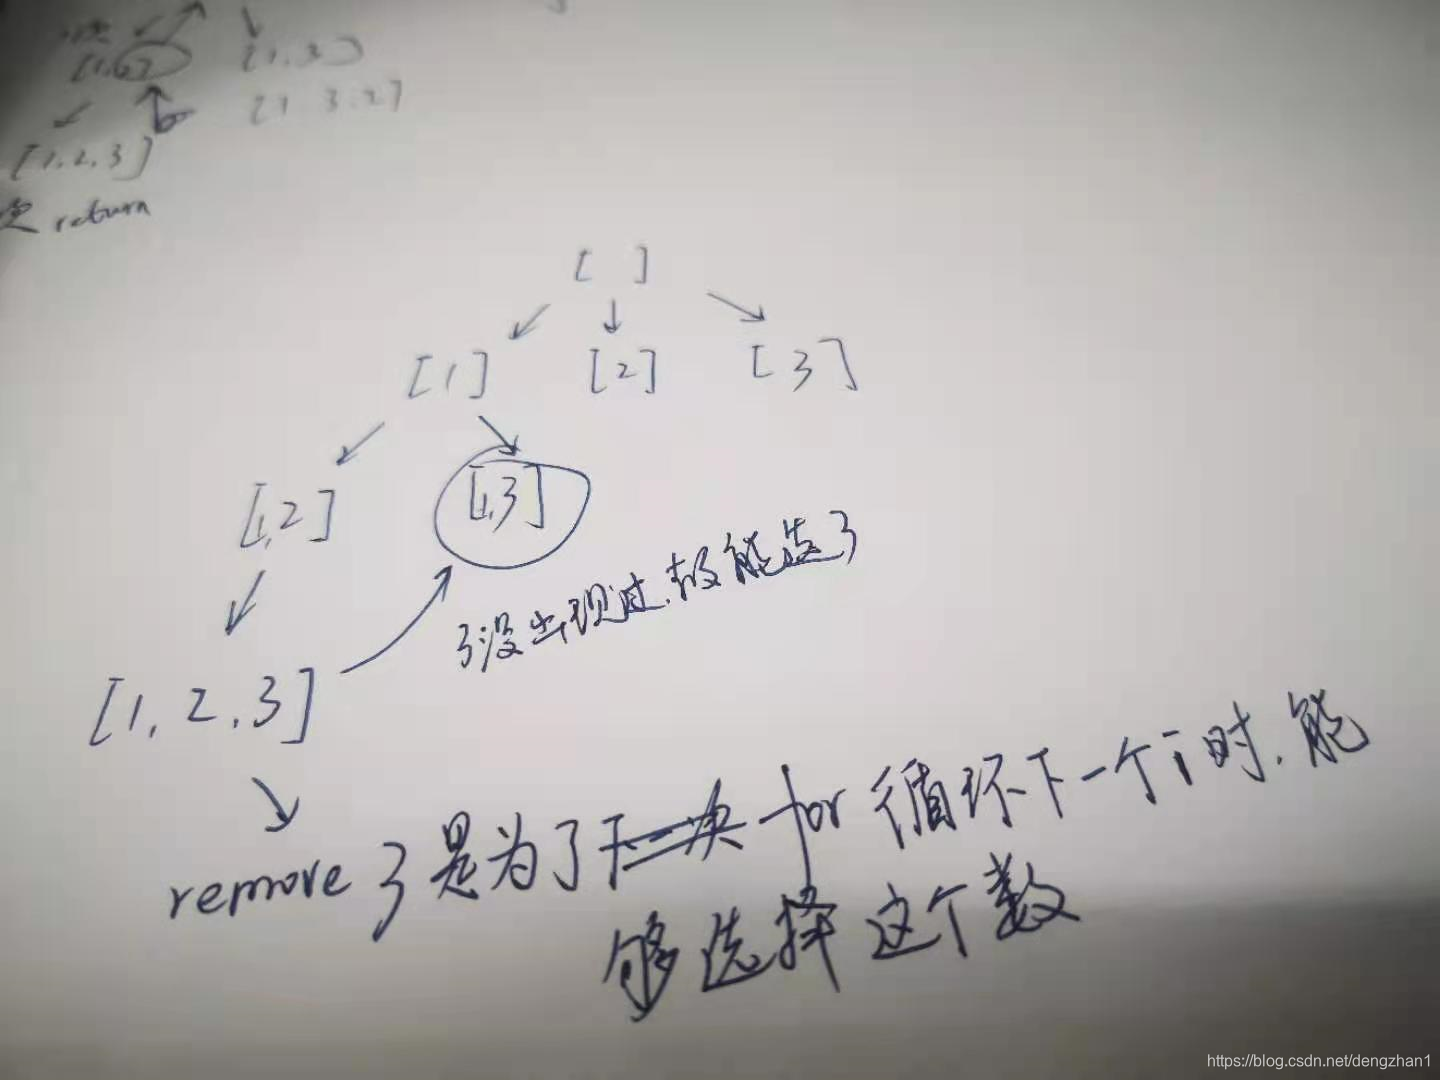 [1,3]
[1,3,2]
[1,2,3]
return
[ ]
[1] [2] [3]
[1,2] [1,3]
3没出现过,故能选3
[1,2,3]
remove 3是为了下一次for循环下一个i时,能
够选择这个数
https://blog.csdn.net/dengzhan1